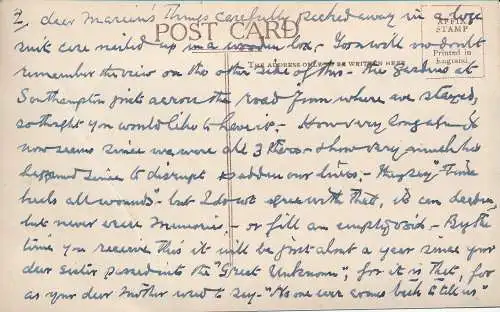 2, dear Marcia's Things carefully packed away in a large
suit case nailed up in a wooden box - You will no doubt
remember the view on the other side of this - the gardens at
Southampton just across the road from where we stayed,
so thought you would like to have it. - How very long ago it
now seems since we were all 3 there - & how very much has
happened since to disrupt & sadden our lives. - They say "Time
heals all wounds" - but I do not agree with that, it can deaden,
but never cure Memories. - or fill an empty void - By the
time you receive this it will be just about a year since your
dear sister passed into the "Great Unknown", for it is that, for
as your dear Mother used to say - "No one ever comes back to tell us"
POST CARD
THE ADDRESS ONLY TO BE WRITTEN HERE
AFFIX
STAMP
Printed in
England